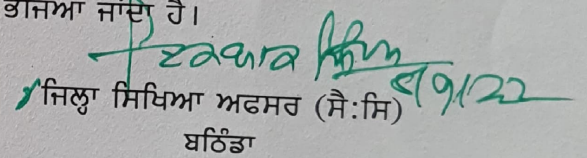 ਭੇਜਿਆ ਜਾਂਦਾ ਹੈ।
ਜਿਲ੍ਹਾ ਸਿਖਿਆ ਅਫਸਰ (ਸੈ:ਸਿ)
ਬਠਿੰਡਾ